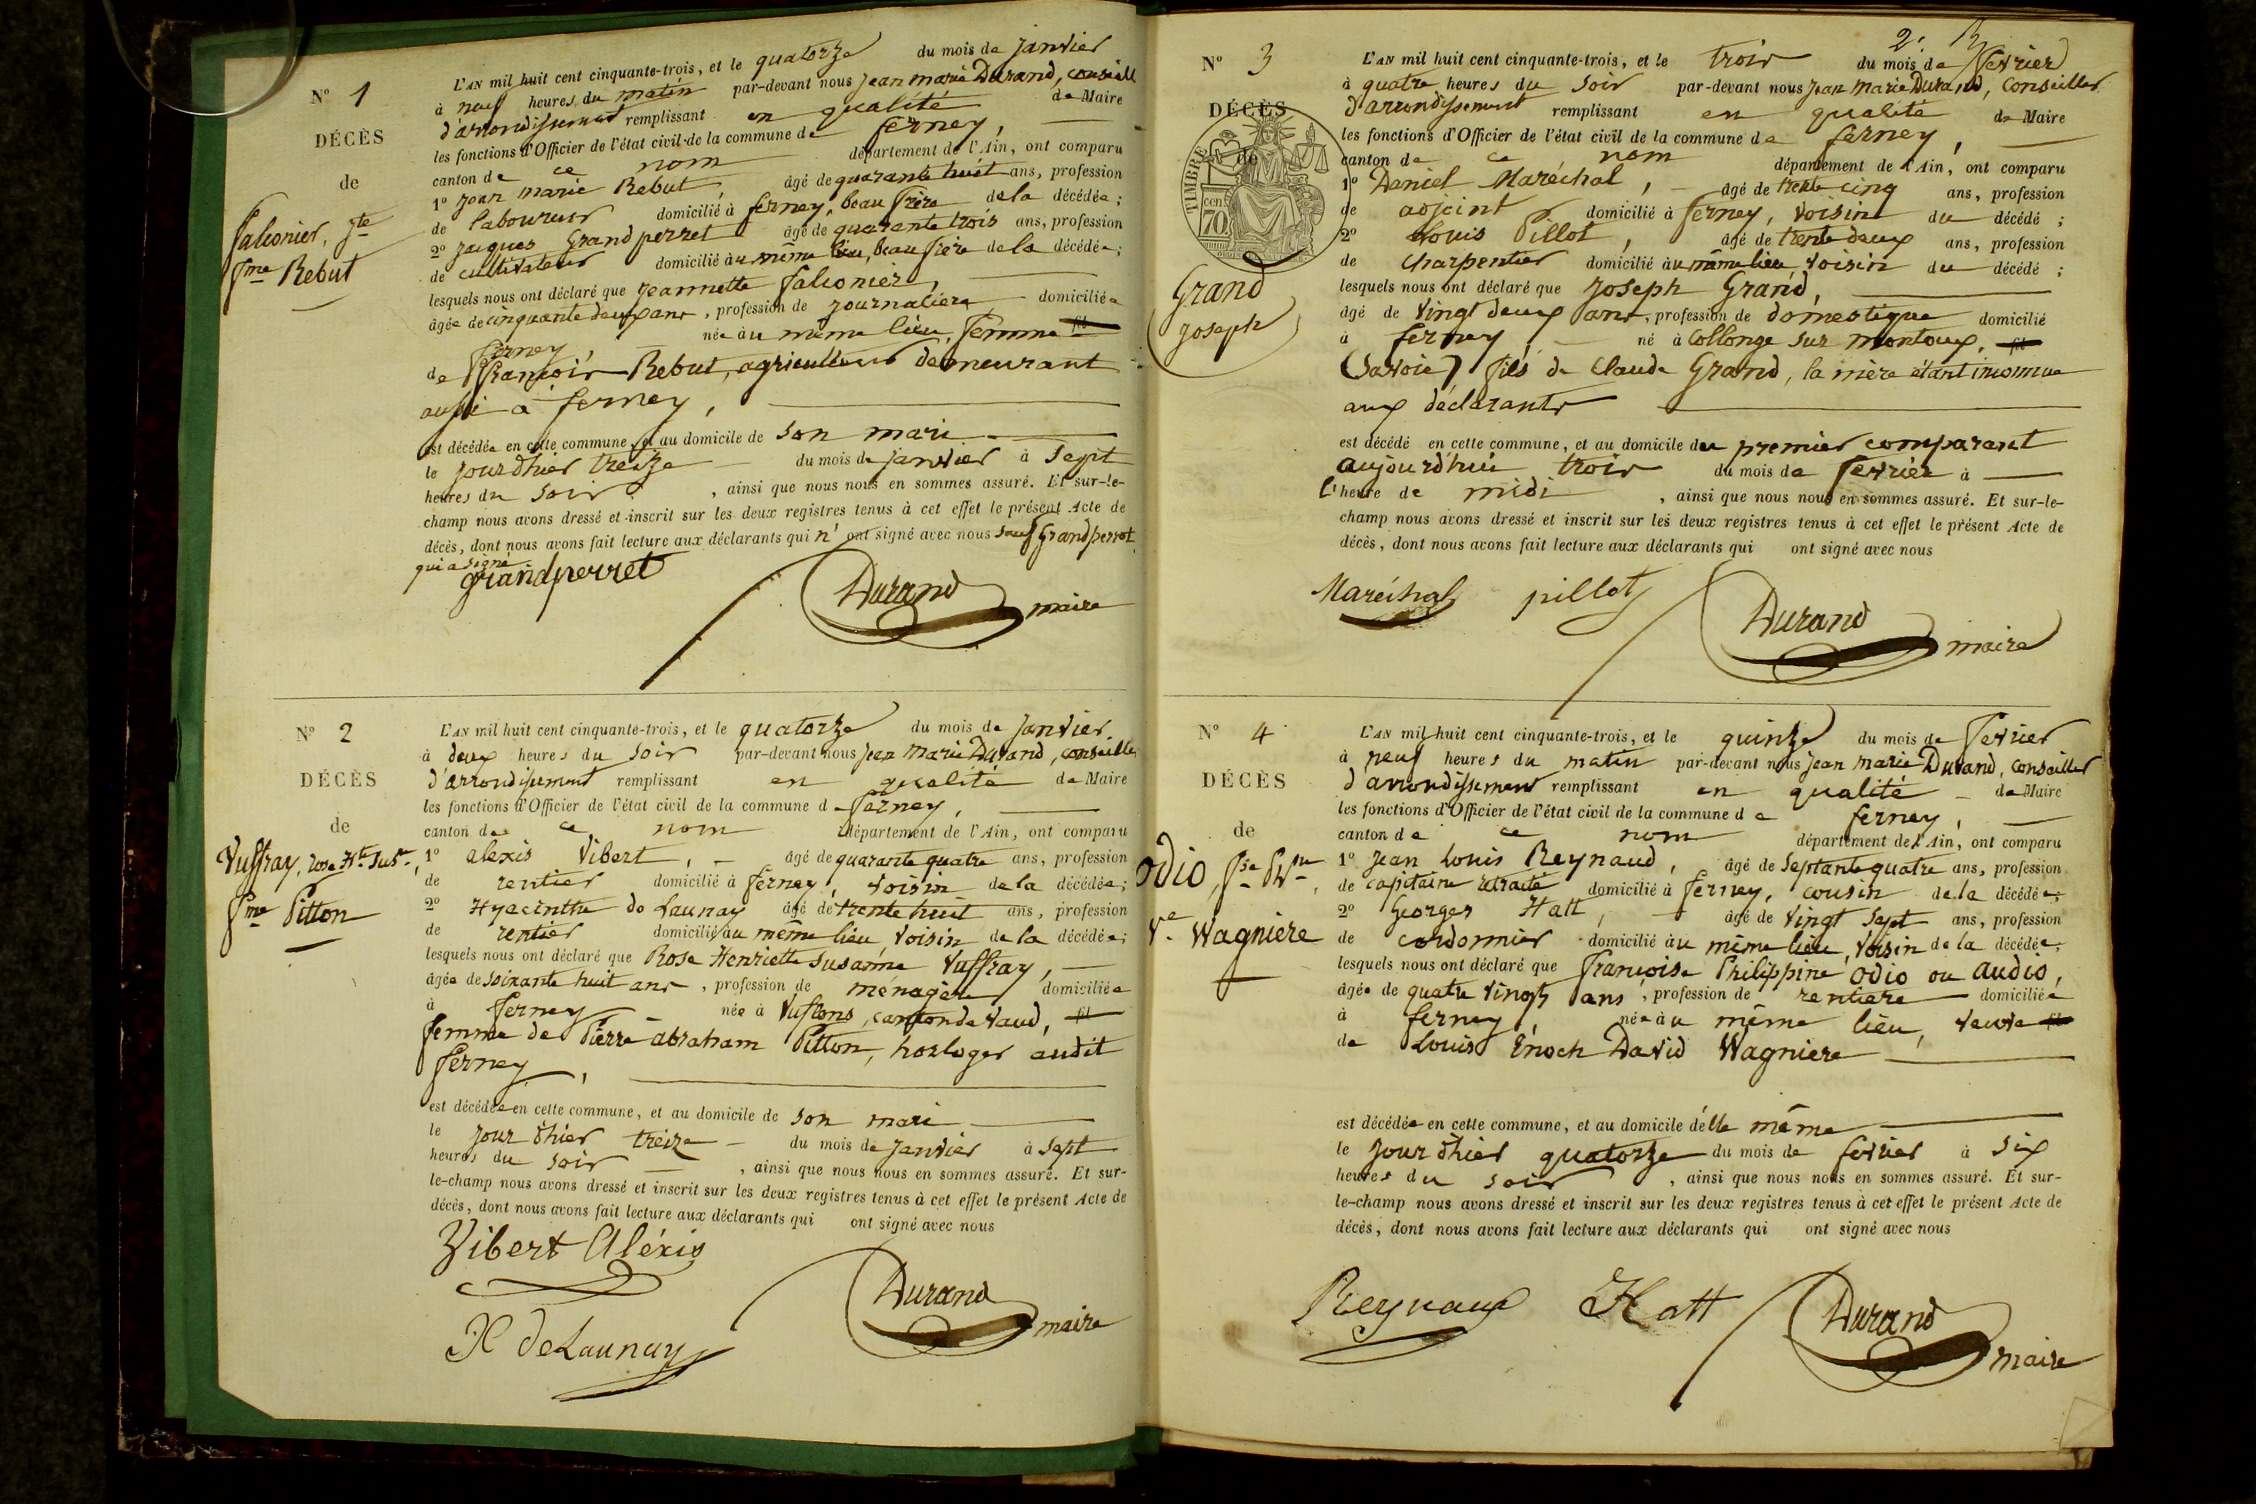 N° 1
DÉCÈS
de
Falconier, Jte
fme Rebut
L'AN mil huit cent cinquante-trois, et le quatorze du mois de janvier
à neuf heures du matin par-devant nous jean marie Durand, conseill
d'arrondissement remplissant en qualité de Maire
les fonctions d'Officier de l'état civil de la commune de ferney,
canton de ce nom département de l'Ain, ont comparu
1° jean marie Rebut, âgé de quarante huit ans, profession
de laboureur domicilié à ferney, beau frère de la décédée;
2° jacques Grandperret âgé de quarante trois ans, profession
de cultivateur domicilié au même lieu, beau frère de la décédée;
lesquels nous ont déclaré que jeannette falconier,
âgée de cinquante deux ans, profession de journalière domiciliée
ferney, née au même lieu, femme fil
de françois Rebut, agriculteur demeurant
aussi à ferney,
est décédée en cette commune, et au domicile de son mari
le jour d'hier treize du mois de janvier à sept
heures du soir, ainsi que nous nous en sommes assuré. Et sur-le-
champ nous avons dressé et inscrit sur les deux registres tenus à cet effet le présent Acte de
décès, dont nous avons fait lecture aux déclarants qui n'ont signé avec nous sauf Grandperret
qui a signé
grandperret
Durand
maire
N° 2
DÉCÈS
de
Vuffray, rose Hte Susne,
fme Pitton
L'AN mil huit cent cinquante-trois, et le quatorze du mois de janvier.
à deux heures du soir par-devant nous jean marie Durand, conseiller
d'arrondissement remplissant en qualité de Maire
les fonctions d'Officier de l'état civil de la commune d ferney,
canton de ce nom département de l'Ain, ont comparu
1° alexis Vibert, âgé de quarante quatre ans, profession
de rentier domicilié à ferney, voisin de la décédée;
2° Hyacinthe de Launay âgé de trente huit ans, profession
de rentier domicilié au même lieu, voisin de la décédée;
lesquels nous ont déclaré que Rose Henriette Susanne Vuffray,
âgée de soixante huit ans, profession de menagère domiciliée
à ferney née à Vuflens, canton de Vaud, fil
femme de Pierre abraham Pitton, horloger audit
ferney,
est décédée en cette commune, et au domicile de son mari
le jour d'hier treize du mois de janvier à sept
heures du soir, ainsi que nous nous en sommes assuré. Et sur-
le-champ nous avons dressé et inscrit sur les deux registres tenus à cet effet le présent Acte de
décès, dont nous avons fait lecture aux déclarants qui ont signé avec nous
Vibert Aléxis
H deLaunay
Durand
maire
2.
N° 3
DÉCÈS
de
TIMBRE
cen
70
Grand
joseph
L'AN mil huit cent cinquante-trois, et le trois du mois de fevrier
à quatre heures du soir par-devant nous jean marie Durand, conseiller
d'arrondissement remplissant en qualité de Maire
les fonctions d'Officier de l'état civil de la commune de ferney,
canton de ce nom département de l'Ain, ont comparu
1° Daniel Maréchal, âgé de trente cinq ans, profession
de adjoint domicilié à ferney, voisin du décédé;
2° Louis Pillot, âgé de trente deux ans, profession
de charpentier domicilié au même lieu, voisin du décédé;
lesquels nous ont déclaré que joseph Grand,
âgé de vingt deux ans, profession de domestique domicilié
à ferney, né à Collonge sur montoux, fil
(Savoie) fils de Claude Grand, la mère étant inconnue
aux déclarants
est décédé en cette commune, et au domicile du premier comparant
aujourd'hui trois du mois de fevrier à
l'heure de midi, ainsi que nous nous en sommes assuré. Et sur-le-
champ nous avons dressé et inscrit sur les deux registres tenus à cet effet le présent Acte de
décès, dont nous avons fait lecture aux déclarants qui ont signé avec nous
Maréchal pillot
Durand
maire
N° 4
DÉCÈS
de
Odio, fse Phne,
Ve Wagniere
L'AN mil huit cent cinquante-trois, et le quinze du mois de fevrier
à neuf heures du matin par-devant nous jean marie Durand, conseiller
d'arrondissement remplissant en qualité de Maire
les fonctions d'Officier de l'état civil de la commune de ferney,
canton de ce nom département de l'Ain, ont comparu
1° jean Louis Reynaud, âgé de septante quatre ans, profession
de capitaine retraité domicilié à ferney, cousin de la décédée;
2° Georges Hatt, âgé de vingt sept ans, profession
de cordonnier domicilié au même lieu, voisin de la décédée;
lesquels nous ont déclaré que françoise Philippine Odio ou audio,
âgée de quatre vingts ans, profession de rentiere domiciliée
à ferney, née au même lieu, veuve fil
de Louis Enoch David Wagniere
est décédée en cette commune, et au domicile d'elle même
le jour d'hier quatorze du mois de fevrier à six
heures du soir, ainsi que nous nous en sommes assuré. Et sur-
le-champ nous avons dressé et inscrit sur les deux registres tenus à cet effet le présent Acte de
décès, dont nous avons fait lecture aux déclarants qui ont signé avec nous
Reynaud Hatt
Durand
maire